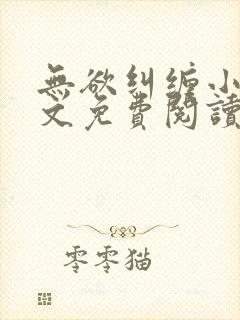 無欲糾缠小
文免費閱讀
零零猫